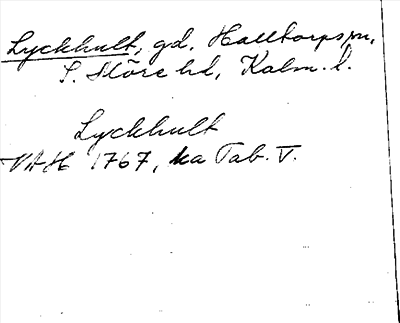 Lyckhult, gd, Halltorps sn,
S. Möre hd, Kalm. l.
Lyckhult
VAH 1767, ka Tab. V.